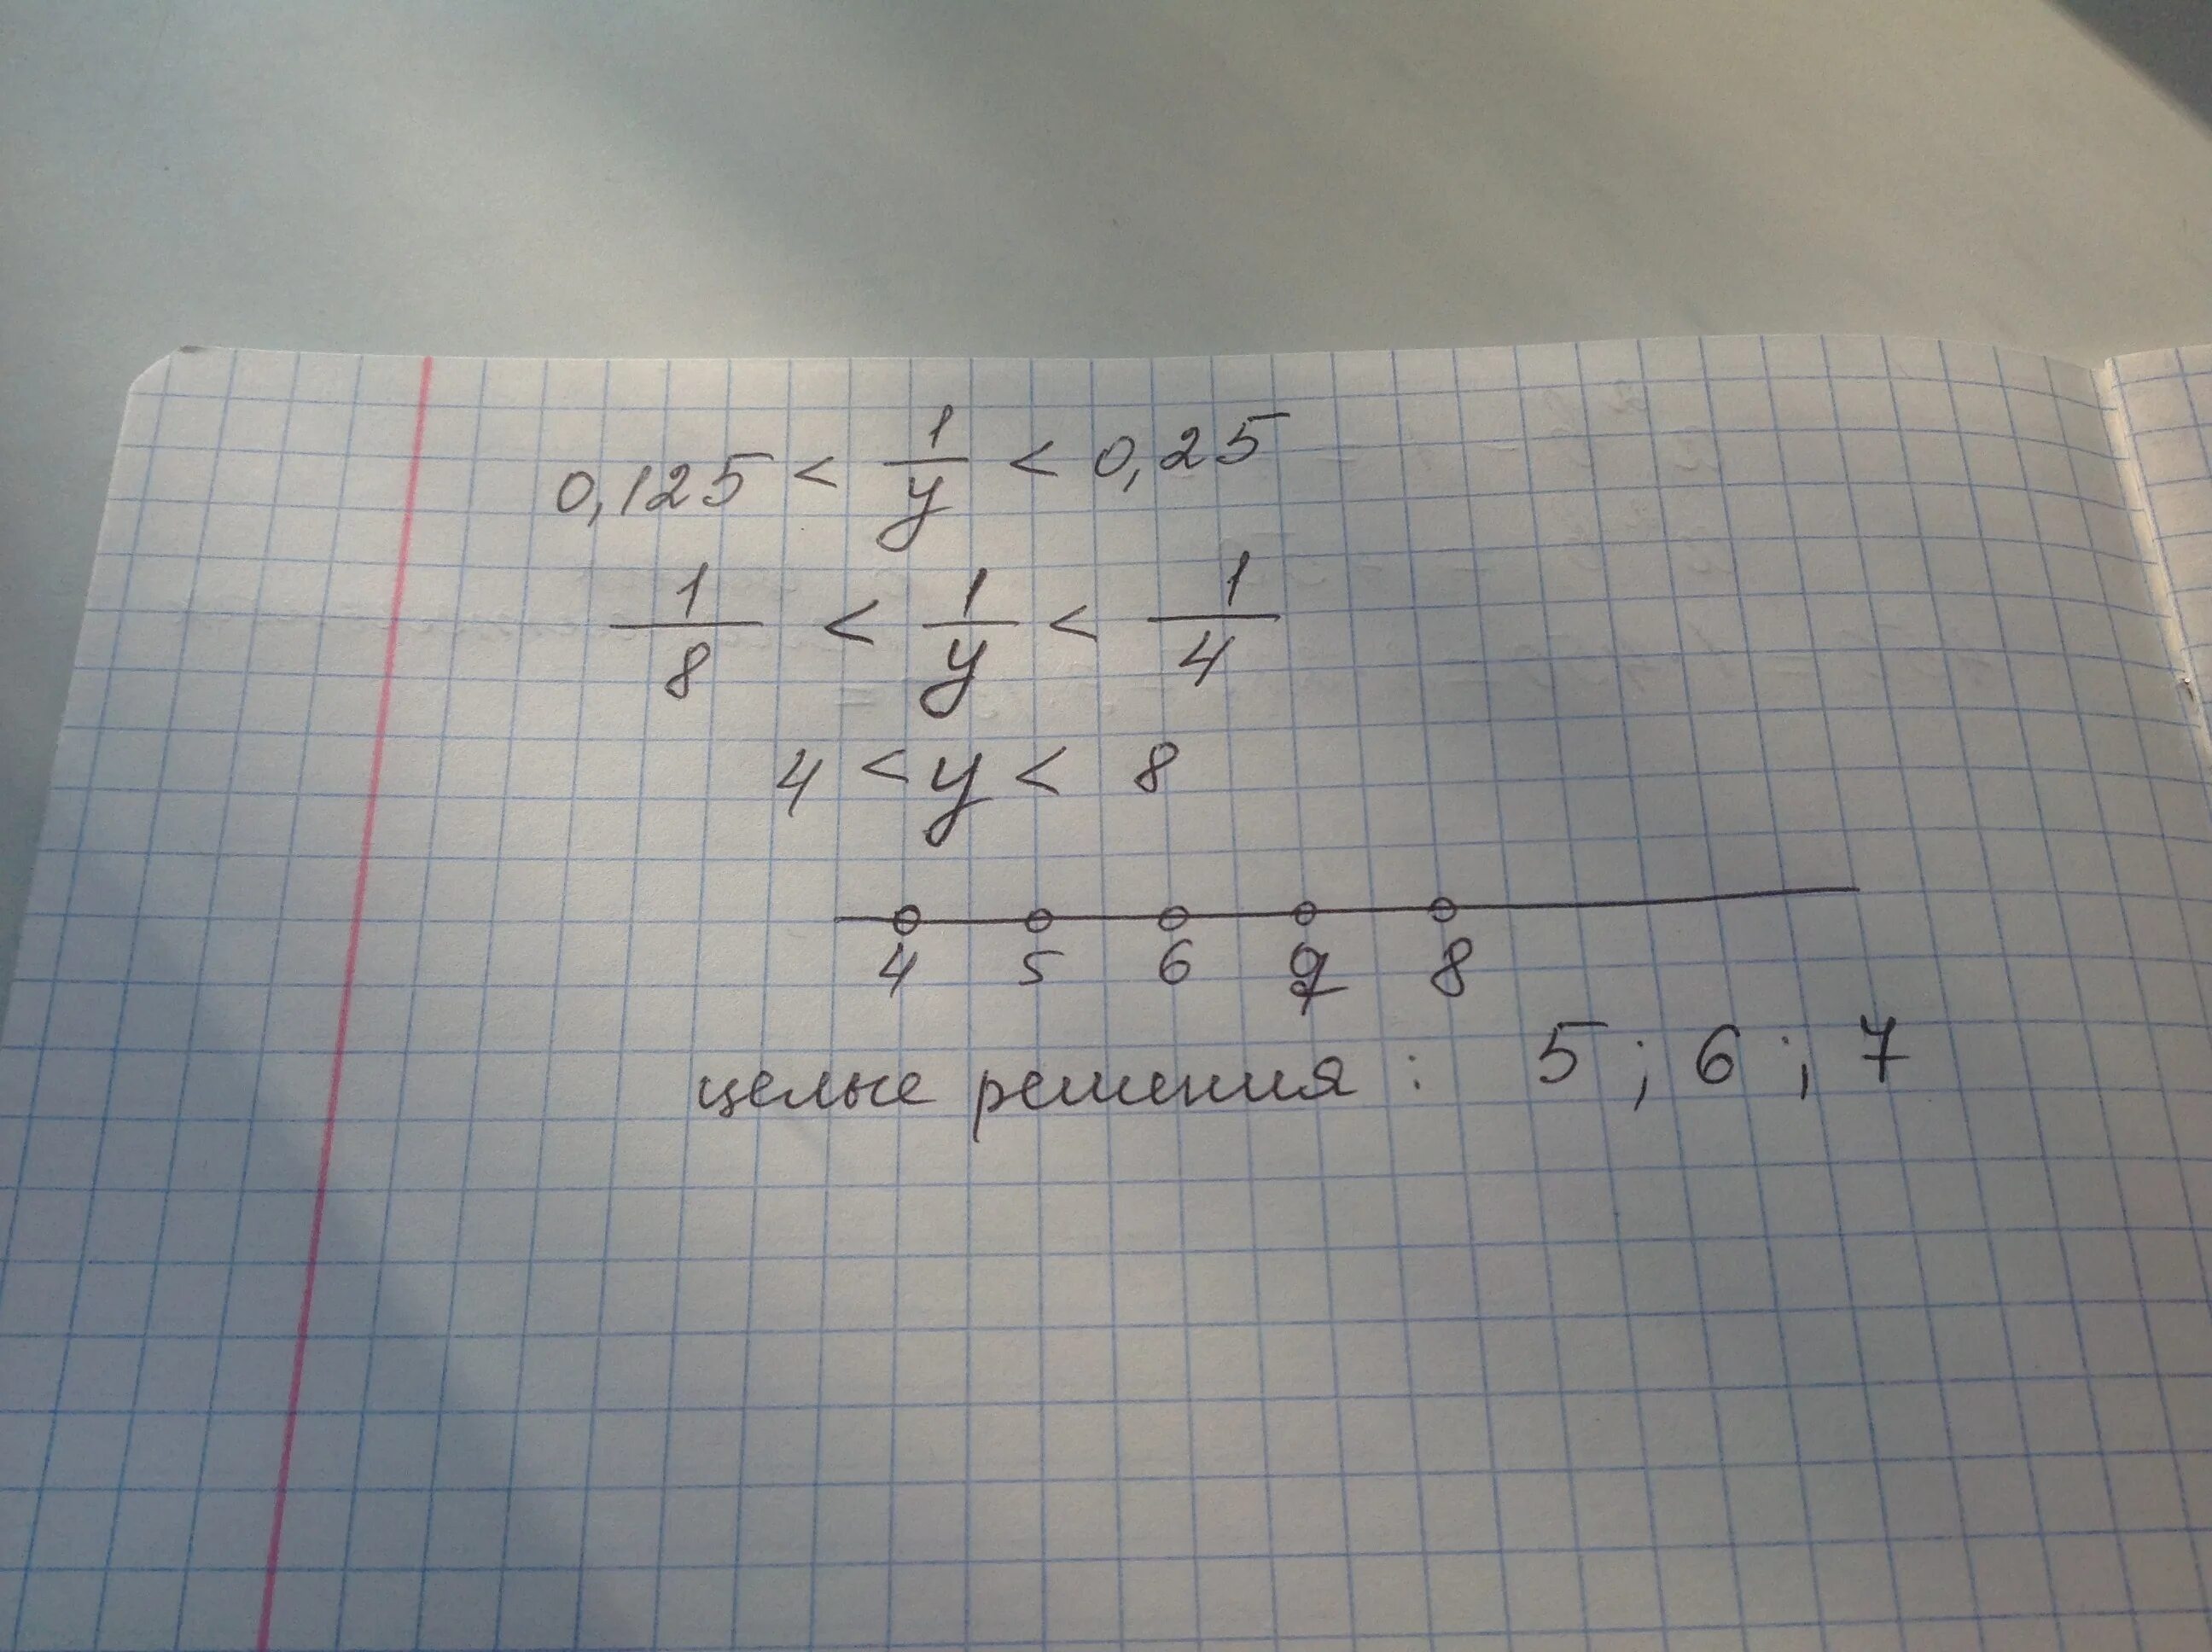 0,125 < 1/y < 0,25
1/8 < 1/y < 1/4
4 < y < 8
4 5 6 7 8
целые решения : 5 ; 6 ; 7